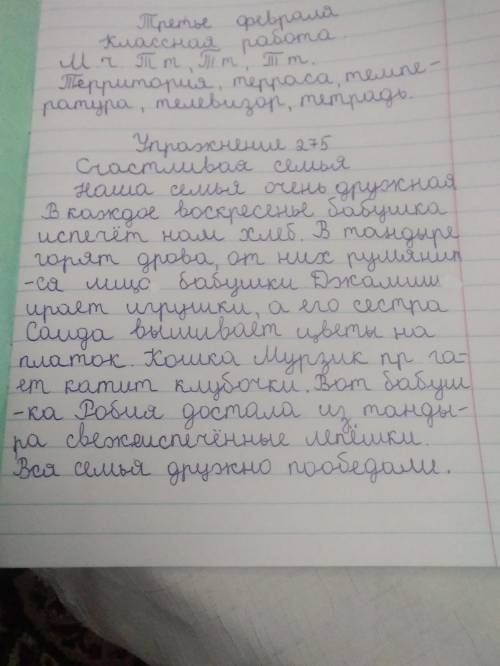 Третье февраля
Классная работа.
М ч. Тт, Тт, Тт.
Территория, терраса, темпе-
ратура, телевизор, тетрадь.
Упражнение 275
Счастливая семья
Наша семья очень дружная
В каждое воскресенье бабушка
испечёт нам хлеб. В тандыре
горят дрова, от них румянит
-ся лицо бабушки Джамиш
ирает игрушки, а его сестра
Саида вышивает цветы на
платок. Кошка Мурзик пр га-
ет катит клубочки. Вот бабуш
-ка Робия достала из танды-
ра свежеиспечённые лепёшки.
Вся семья дружно пообедали.